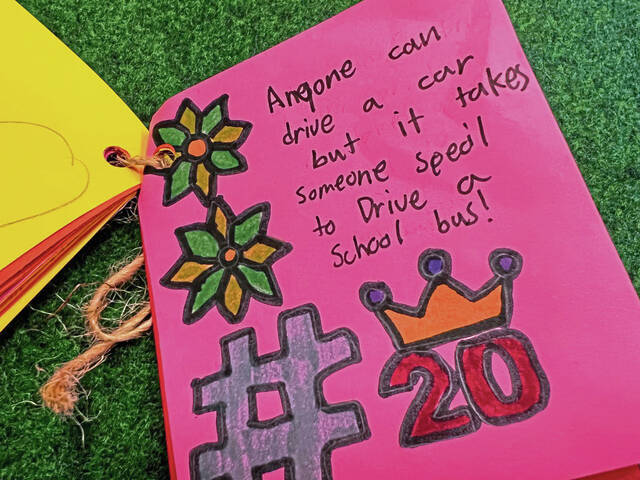 Anyone can
drive a car
but it takes
someone specil
to Drive a
School bus!
#20